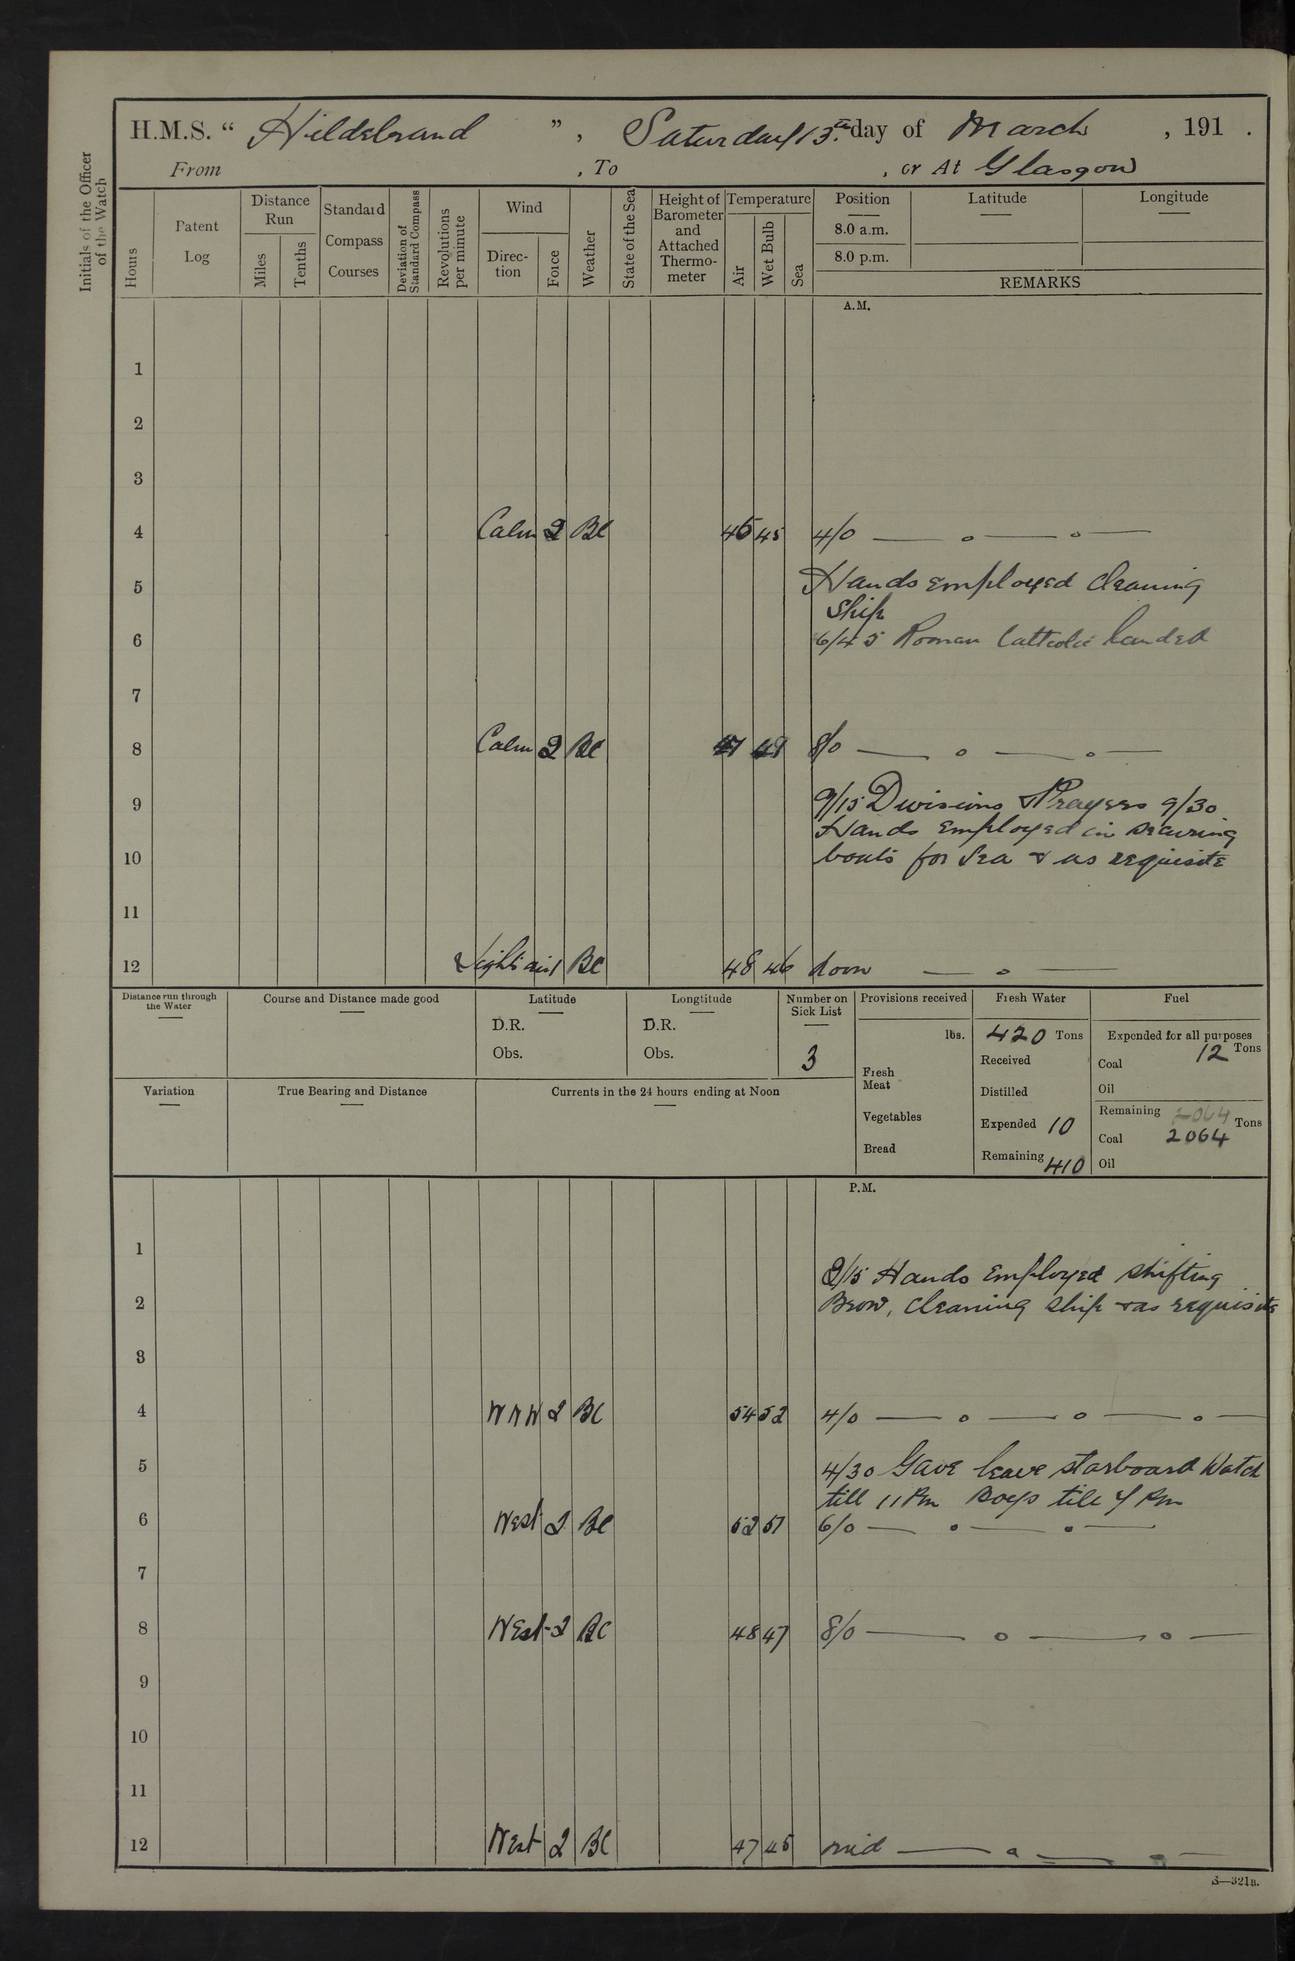 H.M.S. “ Hildebrand ” , Saturday 13th day of March , 191 .
From , To , or At Glasgow
Initials of the Officer of the Watch
Hours
Patent Log
Distance Run
Miles
Tenths
Standard Compass Courses
Deviation of Standard Compass
Revolutions per minute
Wind
Direction
Force
Weather
State of the Sea
Height of Barometer and Attached Thermometer
Temperature
Air
Wet Bulb
Sea
Position Latitude Longitude
8.0 a.m.
8.0 p.m.
REMARKS
A.M.
1
2
3
4 Calm 2 BC 46 45 4/0 — o — o —
5 Hands employed cleaning
Ship
6 6/45 Roman Catholic landed
7
8 Calm 2 BC 47 8/0 — o — o —
9 9/15 Divisions & Prayers 9/30
Hands employed in securing
10 boats for Sea & as requisite
11
12 Light air 1 BC 48 46 Noon — o —
Distance run through the Water
Course and Distance made good
Latitude
D.R.
Obs.
Longtitude
D.R.
Obs.
Number on Sick List
3
Provisions received
lbs.
Fresh Meat
Vegetables
Bread
Fresh Water
420 Tons
Received
Distilled
Expended 10
Remaining 410
Fuel
Expended for all purposes
Coal 12 Tons
Oil
Remaining 2064 Tons
Coal 2064
Oil
Variation
True Bearing and Distance
Currents in the 24 hours ending at Noon
P.M.
1
2/15 Hands Employed shifting
2 Brow, cleaning ship & as requisite
3
4 WNW 2 BC 54 52 4/0 — o — o — o —
5 4/30 Gave leave starboard Watch
till 11 Pm Boys till 9 Pm
6 West 2 BC 52 51 6/0 — o — o —
7
8 West 2 BC 48 47 8/0 — o — o —
9
10
11
12 West 2 BC 47 45 mid — o — o —
S—321a.